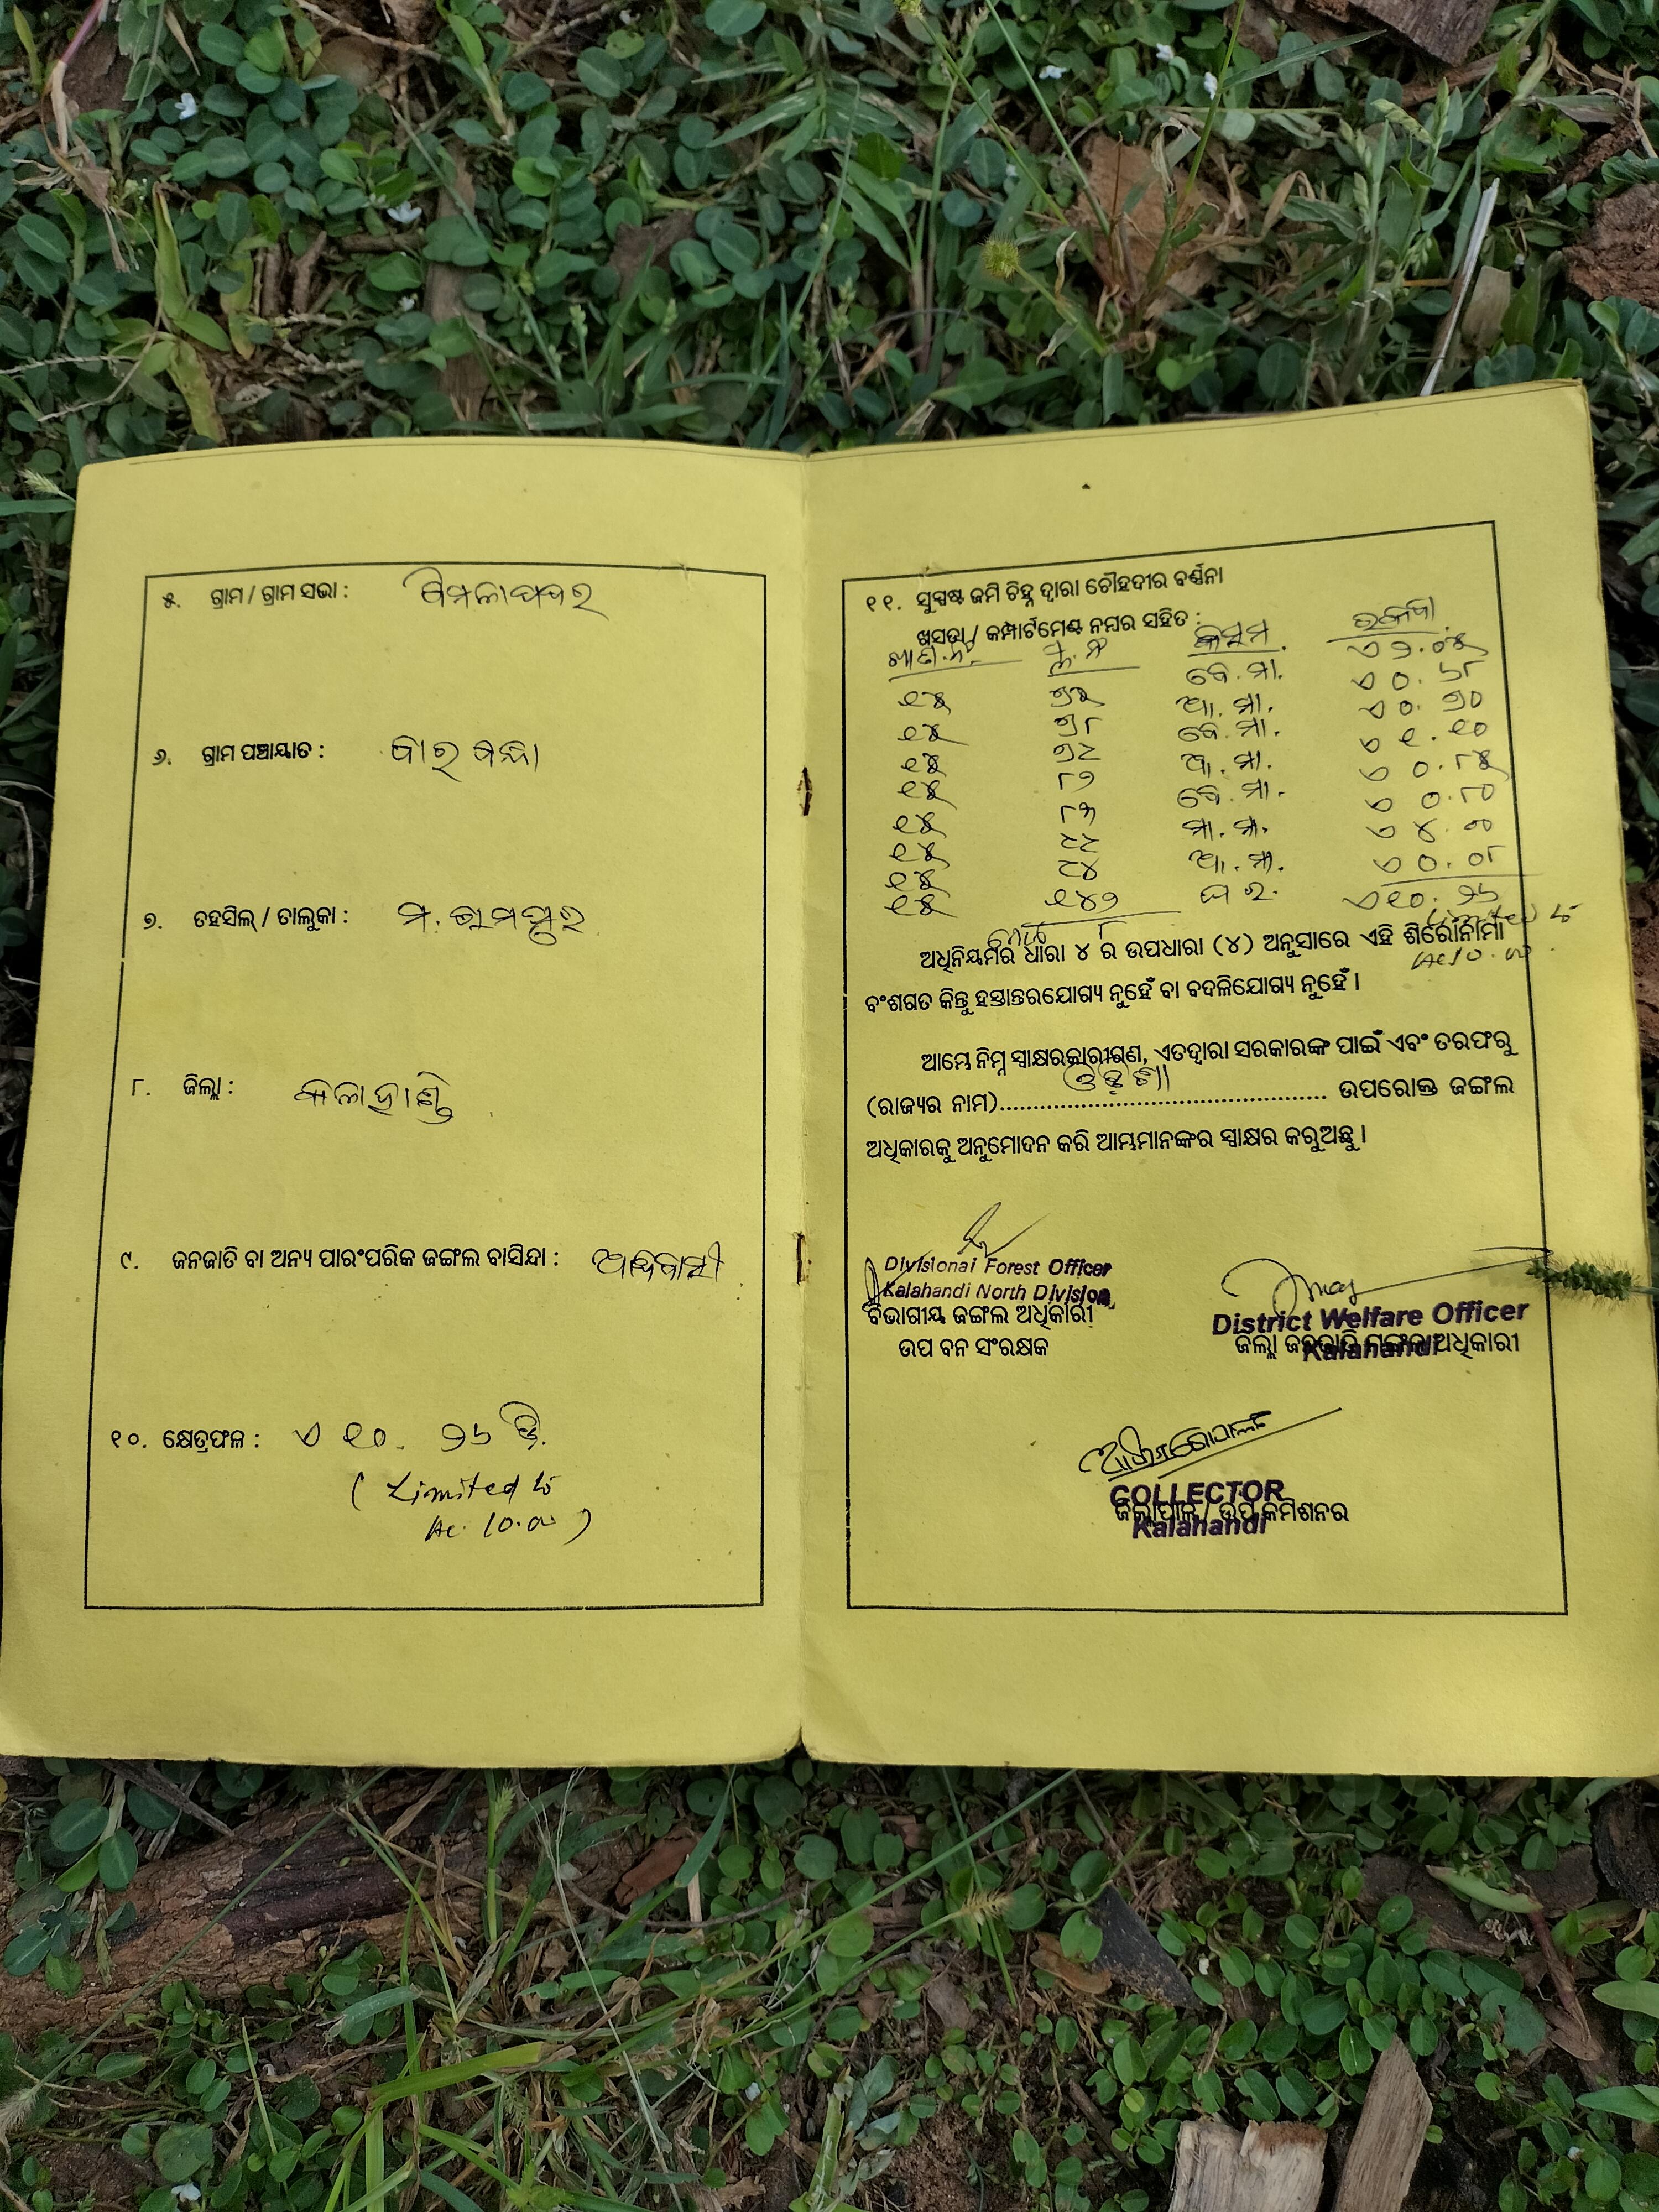 ୫. ଗ୍ରାମ / ଗ୍ରାମ ସଭା : ଶିମଳାପଦର
୬. ଗ୍ରାମ ପଞ୍ଚାୟାତ : ବାରବନ୍ଧା
୭. ତହସିଲ୍ / ତାଲୁକା : ମ. ରାମପୁର
୮. ଜିଲ୍ଲା : କଳାହାଣ୍ଡି
୯. ଜନଜାତି ବା ଅନ୍ୟ ପାରଂପରିକ ଜଙ୍ଗଲ ବାସିନ୍ଦା : ଆଦିବାସୀ
୧୦. କ୍ଷେତ୍ରଫଳ : ଏ ୧୦. ୨୬ ଡି.
( Limited to
Ac. 10.00 )
୧୧. ସୁସ୍ପଷ୍ଟ ଜମି ଚିହ୍ନ ଦ୍ୱାରା ଚୌହଦୀର ବର୍ଣ୍ଣନା
ଖସଡ଼ା / କମ୍ପାର୍ଟମେଣ୍ଟ ନମ୍ବର ସହିତ :
ଖାତା.ନଂ. ପ୍ଲ.ନଂ କିସମ ରକବା
ବେ.ମା. ଏ ୨.୦୫
ଆ.ମା. ଏ ୦.୬୮
ବେ.ମା. ଏ ୦.୭୦
ଆ.ମା. ଏ ୧.୧୦
ବେ.ମା. ଏ ୦.୮୫
ମା.ମା. ଏ ୦.୮୦
ଆ.ମା. ଏ ୪.୦୦
ଘର. ଏ ୦.୦୮
ଏ ୧୦.୨୬
Limited to
Ac 10.00
ଅଧିନିୟମର ଧାରା ୪ ର ଉପଧାରା (୪) ଅନୁସାରେ ଏହି ଶିରୋନାମା
ବଂଶଗତ କିନ୍ତୁ ହସ୍ତାନ୍ତରଯୋଗ୍ୟ ନୁହେଁ ବା ବଦଳିଯୋଗ୍ୟ ନୁହେଁ ।
ଆମ୍ଭେ ନିମ୍ନ ସ୍ୱାକ୍ଷରକାରୀଗଣ, ଏତଦ୍ୱାରା ସରକାରଙ୍କ ପାଇଁ ଏବଂ ତରଫରୁ
(ରାଜ୍ୟର ନାମ) ଓଡ଼ିଶା ................ ଉପରୋକ୍ତ ଜଙ୍ଗଲ
ଅଧିକାରକୁ ଅନୁମୋଦନ କରି ଆମ୍ଭମାନଙ୍କର ସ୍ୱାକ୍ଷର କରୁଅଛୁ ।
Divisional Forest Officer
Kalahandi North Division
ବିଭାଗୀୟ ଜଙ୍ଗଲ ଅଧିକାରୀ
ଉପ ବନ ସଂରକ୍ଷକ
District Welfare Officer
Kalahandi
ଜିଲ୍ଲା ଜନଜାତି ମଙ୍ଗଳ ଅଧିକାରୀ
COLLECTOR
Kalahandi
ଜିଲ୍ଲାପାଳ / ଉପ କମିଶନର